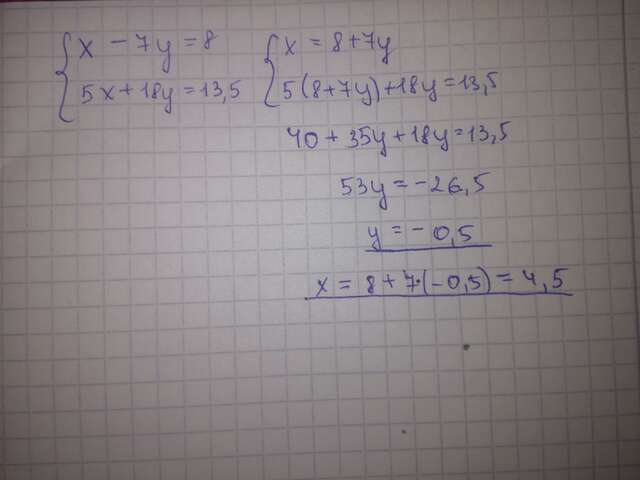 x - 7y = 8
5x + 18y = 13,5
x = 8 + 7y
5(8 + 7y) + 18y = 13,5
40 + 35y + 18y = 13,5
53y = - 26,5
y = - 0,5
x = 8 + 7·(-0,5) = 4,5